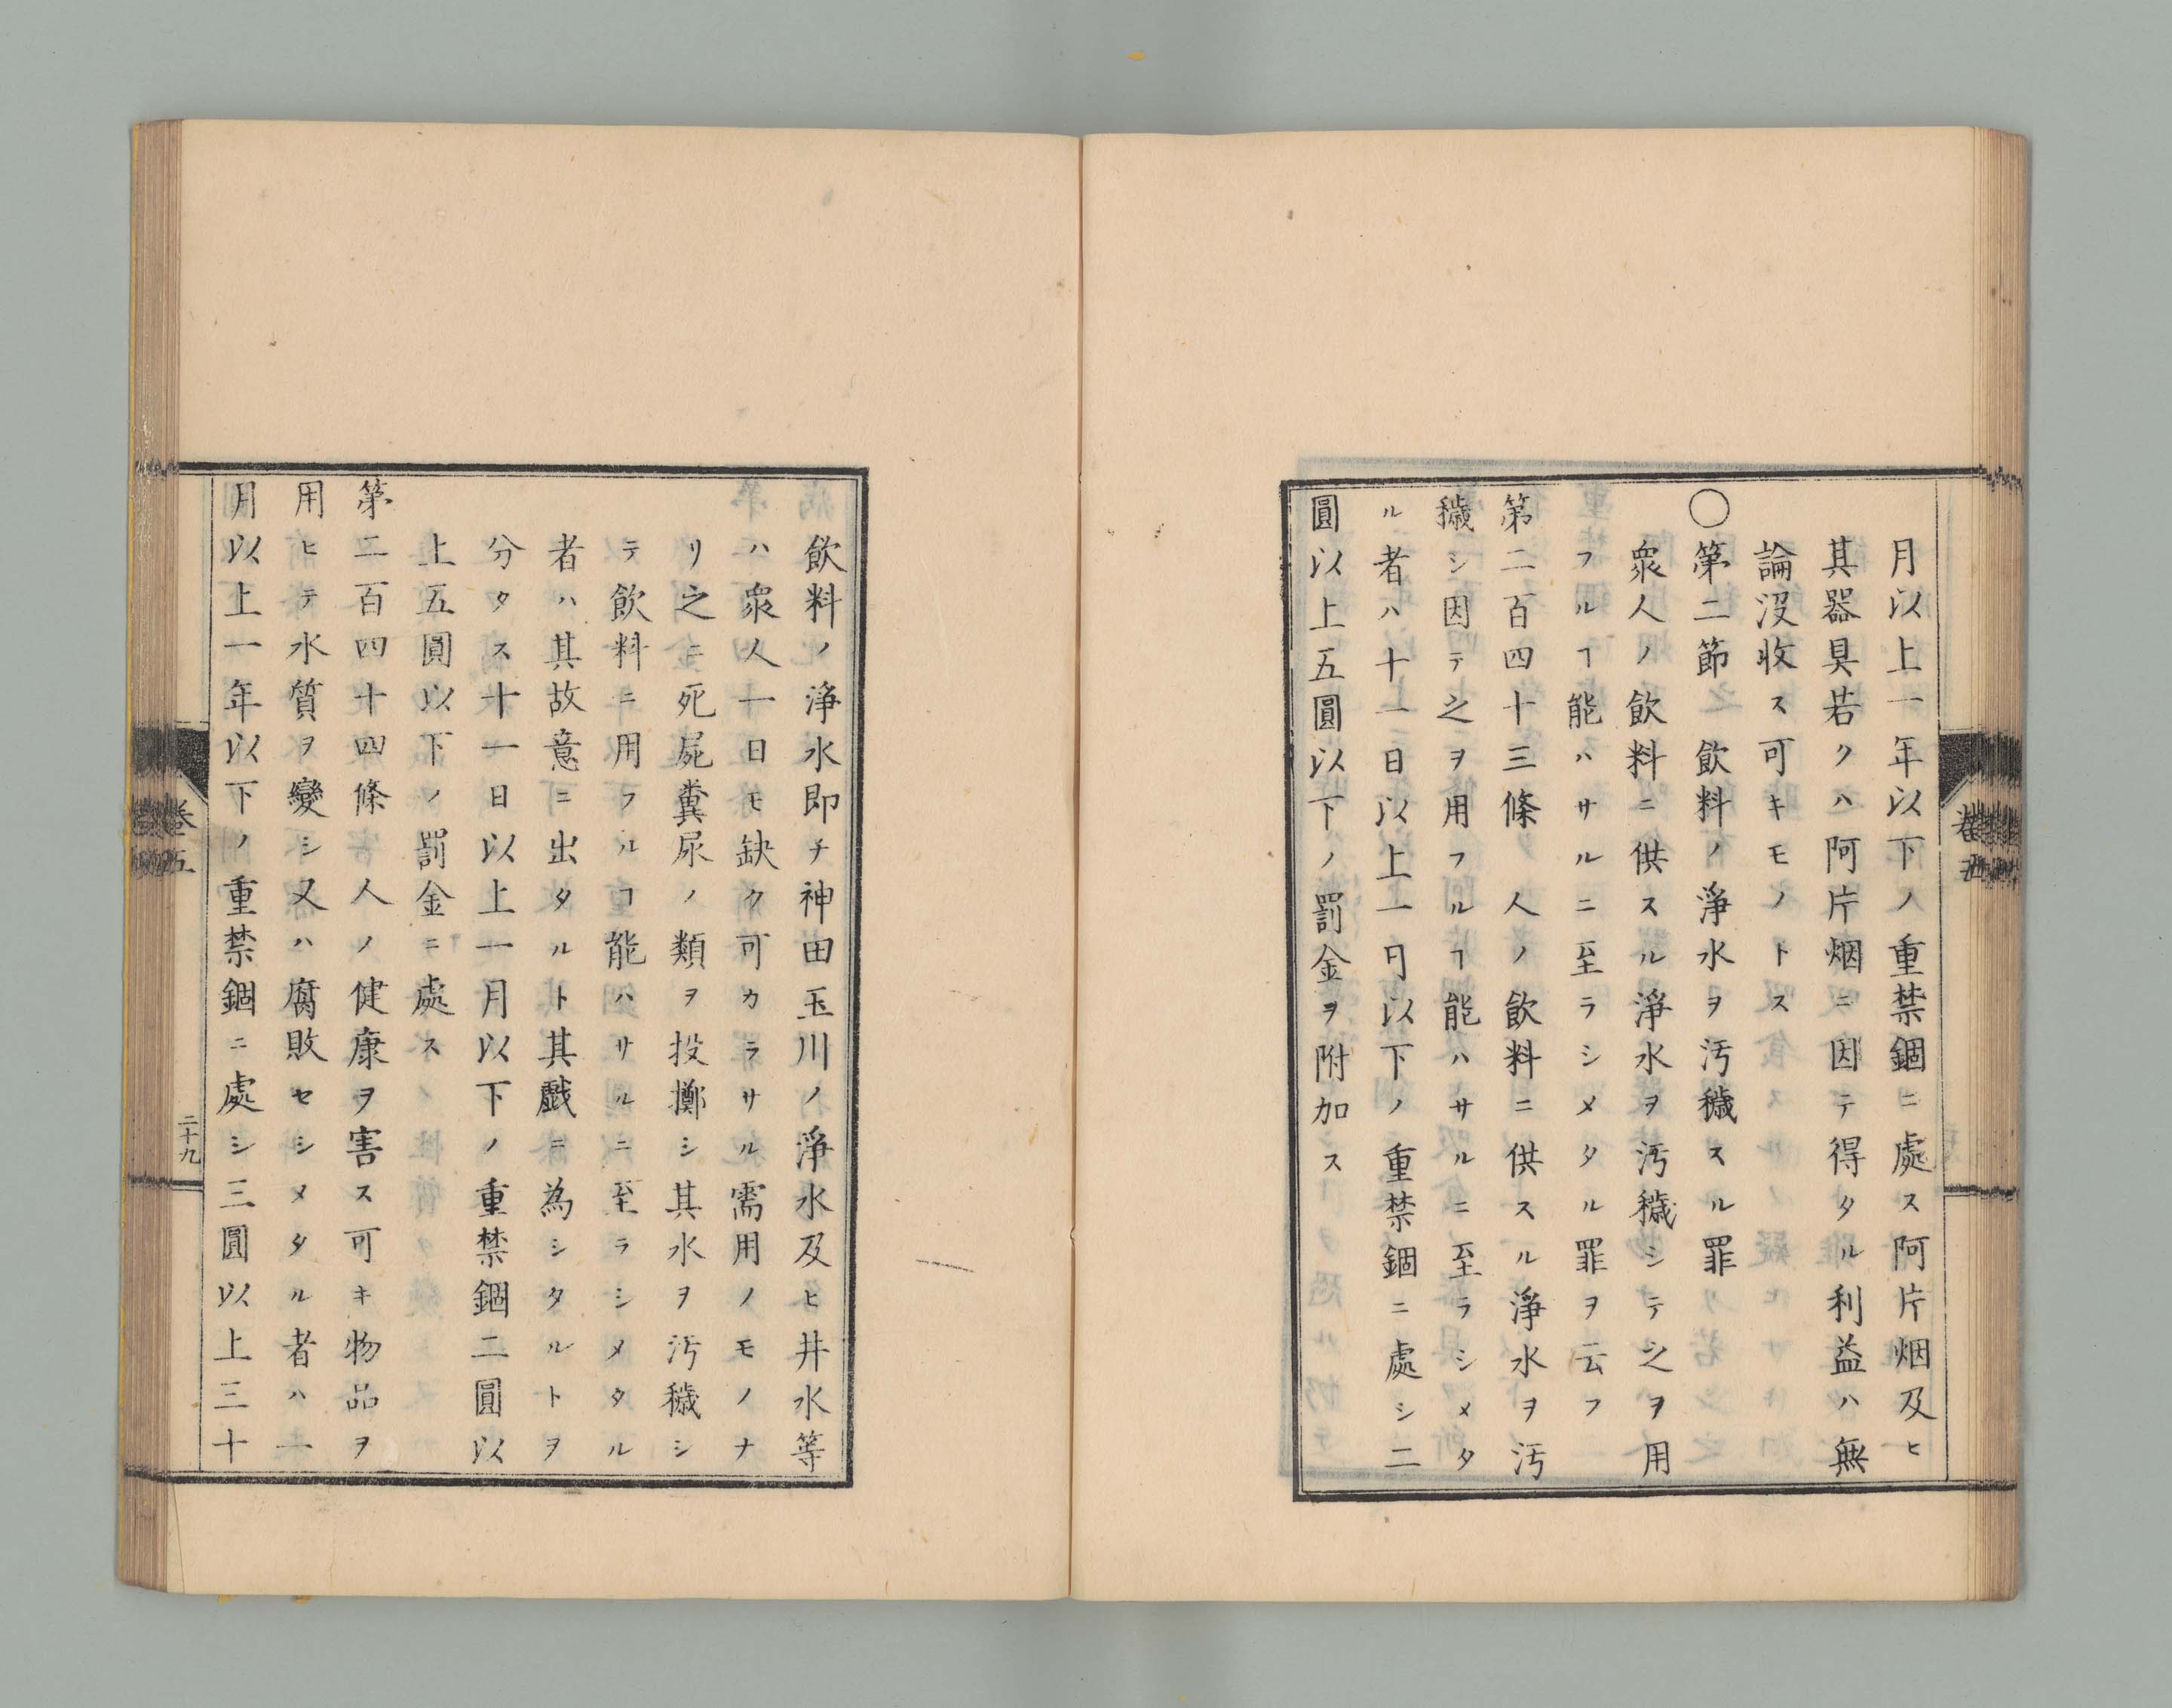 月以上一年以下ノ重禁錮ニ處ス阿片烟及ヒ
其器具若クハ阿片烟ニ因テ得タル利益ハ無
論沒收ス可キモノトス
〇第二節 飲料ノ淨水ヲ汚穢スル罪
衆人ノ飲料ニ供スル淨水ヲ汚穢シテ之ヲ用
フルヿ能ハサルニ至ラシメタル罪ヲ云フ
第二百四十三條 人ノ飲料ニ供スル淨水ヲ汚
穢シ因テ之ヲ用フルヿ能ハサルニ至ラシメタ
ル者ハ十一日以上一月以下ノ重禁錮ニ處シ二
圓以上五圓以下ノ罰金ヲ附加ス
卷五
飲料ノ淨水即チ神田玉川ノ淨水及ヒ井水等
ハ衆人一日モ缺ク可カラサル需用ノモノナ
リ之ニ死屍糞尿ノ類ヲ投擲シ其水ヲ汚穢シ
テ飲料ニ用フルヿ能ハサルニ至ラシメタル
者ハ其故意ニ出タルト其戲ニ為シタルトヲ
分タス十一日以上一月以下ノ重禁錮二圓以
上五圓以下ノ罰金ニ處ス
第二百四十四條 人ノ健康ヲ害ス可キ物品ヲ
用ヒテ水質ヲ變シ又ハ腐敗セシメタル者ハ一
月以上一年以下ノ重禁錮ニ處シ三圓以上三十
卷五
二十九